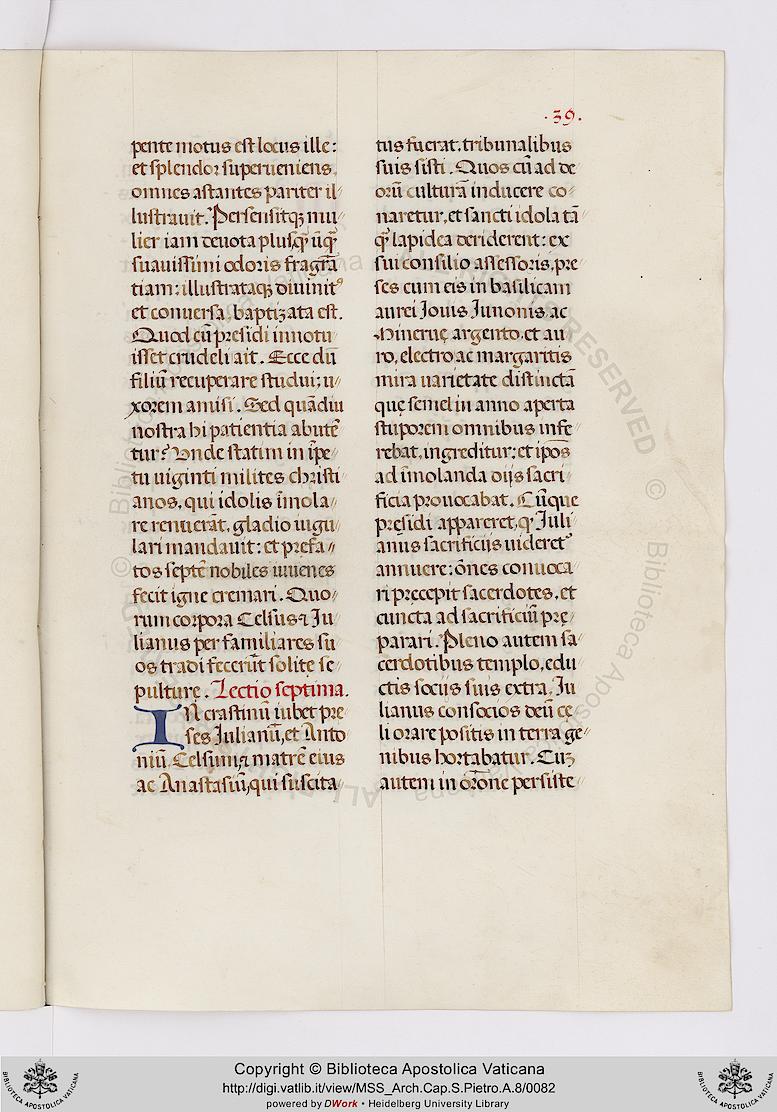 ·39·
pente motus est locus ille:
et splendor superueniens,
omnes astantes pariter il-
lustrauit. Persensitqꝫ mu-
lier iam deuota plusq̃ ũq̃
suauissimi odoris fragrã
tiam: illustrataqꝫ diuinitꝰ
et conuersa, baptizata est.
Quod cũ presidi innotu
isset crudeli ait. Ecce dũ
filiũ recuperare studui; u-
xorem amisi. Sed quãdiu
nostra hi patientia abutẽ
tur? Vnde statim in ĩpe-
tu uiginti milites christi
anos, qui idolis ĩmola-
re renuerãt, gladio uigu-
lari mandauit: et prefa-
tos septẽ nobiles iuuenes
fecit igne cremari. Quo-
rum corpora Celsus ⁊ Iu-
lianus per familiares su-
os tradi fecerũt solite se-
pulture. Lectio septima.
IN crastinũ iubet pre
ses Iulianũ, et Anto
niũ, Celsum, ⁊ matrẽ eius
ac Anastasiũ, qui suscita-
tus fuerat, tribunalibus
suis sisti. Quos cũ ad de
orũ culturã inducere co-
naretur, et sancti idola tã
q̃ lapidea deriderent: ex
sui consilio assessoris, pre-
ses cum eis in basilicam
aurei Iouis Iunonis, ac
Mineruę argento, et au
ro, electro ac margaritis
mira uarietate distinctã
quę semel in anno aperta
stuporem omnibus infe-
rebat, ingreditur: et ip̃os
ad ĩmolanda diis sacri-
ficia prouocabat. Cũque
pręsidi appareret, ꝙ Iuli-
anus sacrificiis uideret᷑
annuere: õnes conuoca-
ri pręcepit sacerdotes, et
cuncta ad sacrificiũ prę-
parari. Pleno autem sa-
cerdotibus templo, edu-
ctis sociis suis extra, Iu
lianus consocios deũ cę
li orare positis in terra ge-
nibus hortabatur. Cuꝫ
autem in or̃one persiste-
Copyright © Biblioteca Apostolica Vaticana
http://digi.vatlib.it/view/MSS_Arch.Cap.S.Pietro.A.8/0082
powered by DWork • Heidelberg University Library